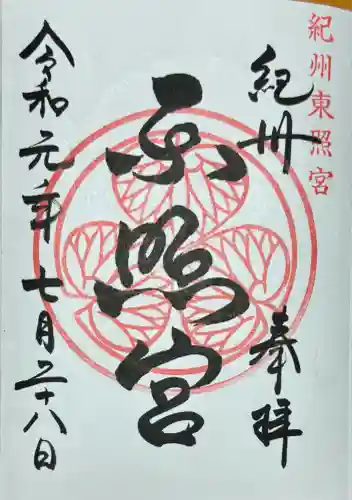 紀州東照宮
紀州
奉拝
東照宮
令和元年七月二十八日